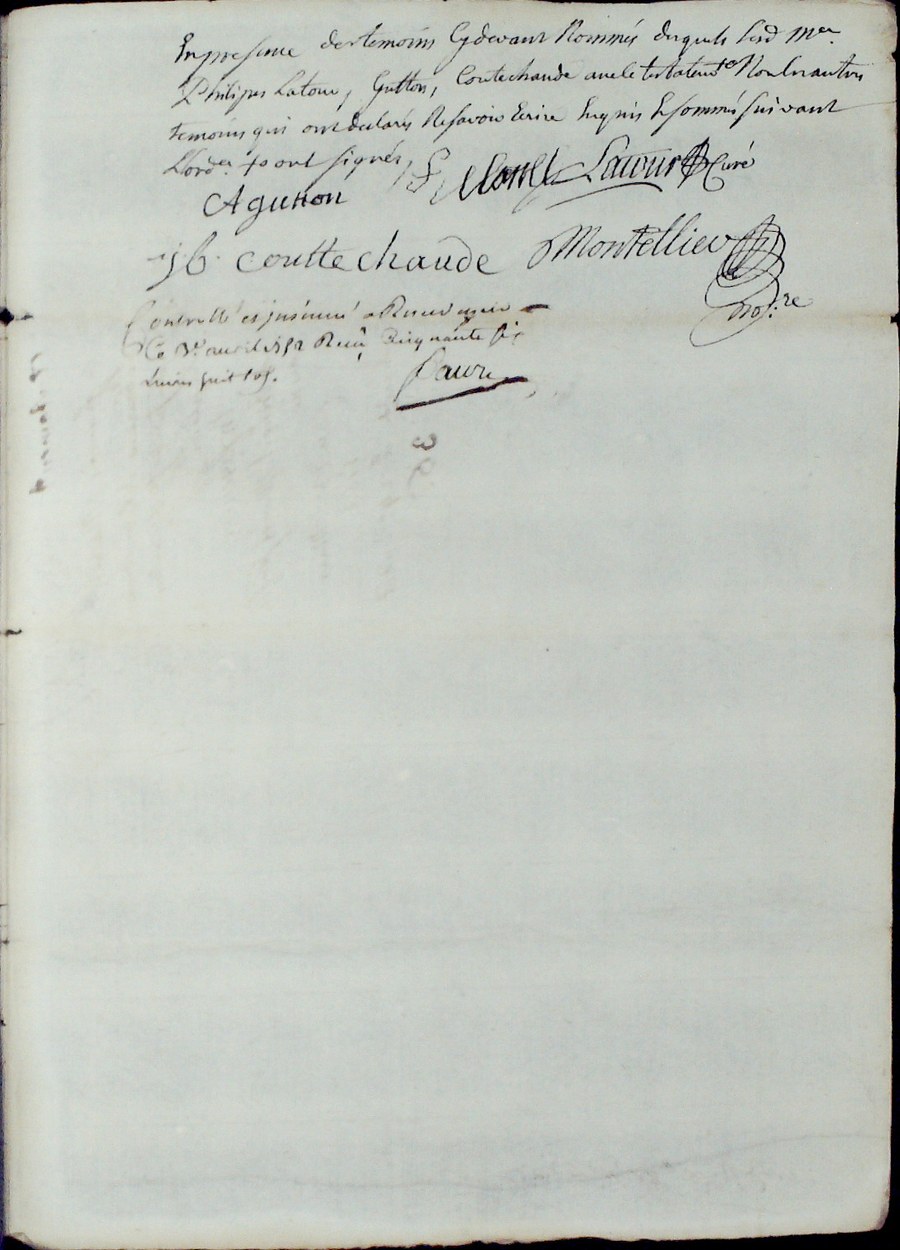 En presence des temoins Cydevant Nommés desquels lesd Mer.
Philipes Latour, Gutton, Coutechaude avec le testateur Non les autres
temoins qui ont declarés Ne savoir Ecrire Enquis Et sommés suivant
L'ord.er ont signés,
Latour Curé
A gutton
jb couttechaude Montellier
no.re
Controllé et insinué a
Ce 3e. avril Recu Cinquante six
Livres huit sos.
faure